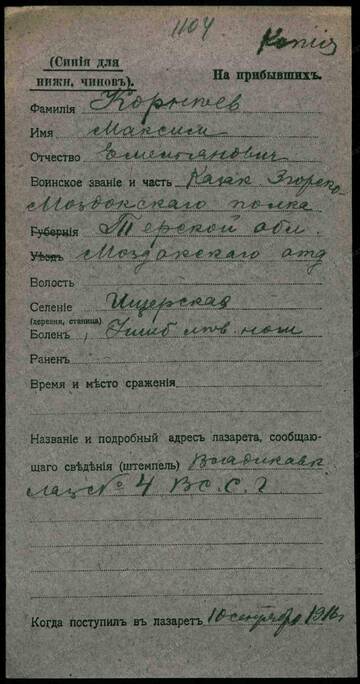 1104
Копія
(Синія для
нижн. чиновъ).
На прибывшихъ.
Фамилія
Имя Максим
Отчество Емельянович
Воинское званіе и часть Казак
Моздокскаго полка
Губернія Терской обл.
Уѣздъ Моздокскаго отд
Волость
Селеніе Ищерская
(деревня, станица)
Боленъ, Ушиб лѣв. ноги
Раненъ
Время и мѣсто сраженія
Названіе и подробный адресъ лазарета, сообщаю-
щаго свѣдѣнія (штемпель) Владикавк
лаз № 4 В. С. Г
Когда поступилъ въ лазаретъ 10 сентября 1916 г